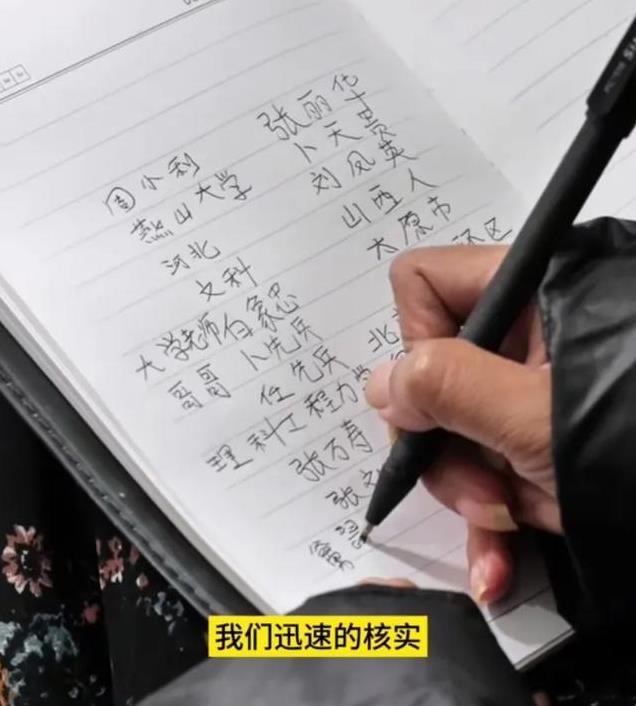 周小利
燕山大学
河北
文科
大学老师白象忠
哥哥 卜先兵
任先兵
理科工程力学
张万寿
张文
张丽华
卜天贵
刘凤英
山西人
太原市
环区
北
我们迅速的核实